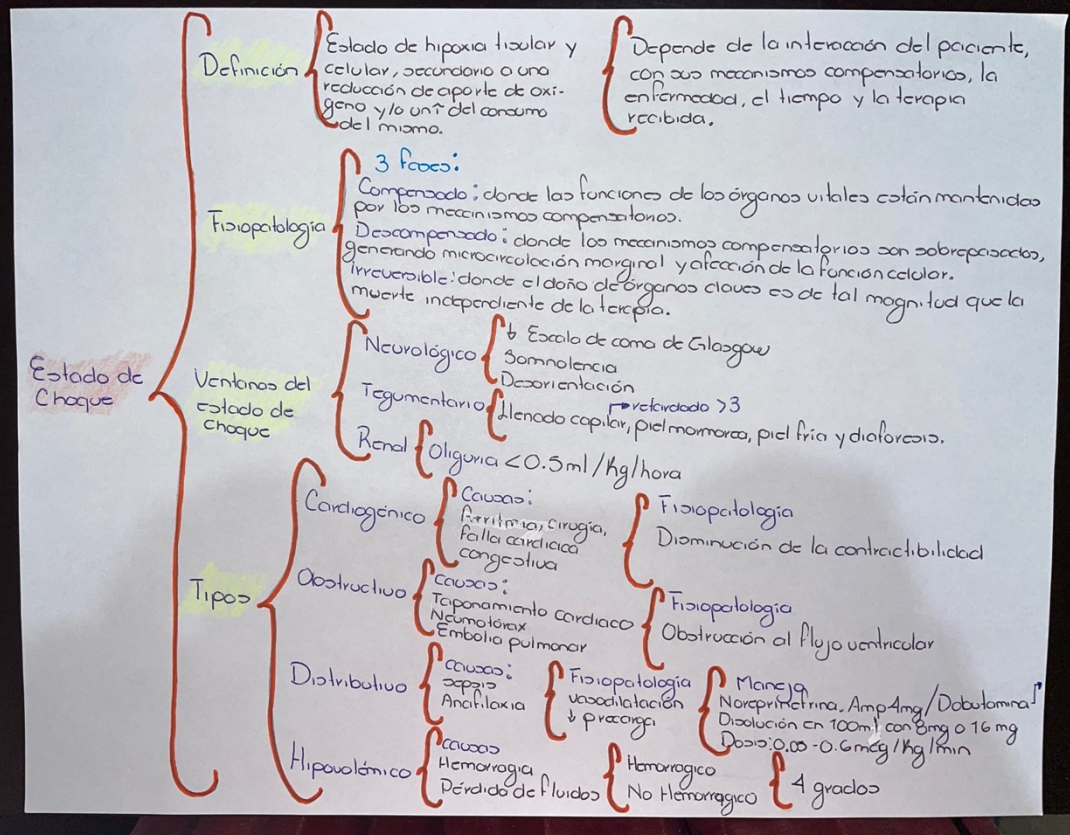 Estado de
Choque
Definición
Estado de hipoxia tisular y
celular, secundario a una
reducción de aporte de oxí-
geno y/o un ↑ del consumo
del mismo.
Depende de la interacción del paciente,
con sus mecanismos compensatorios, la
enfermedad, el tiempo y la terapia
recibida.
Fisiopatología
3 fases:
Compensado: donde las funciones de los órganos vitales están mantenidas
por los mecanismos compensatorios.
Descompensado: donde los mecanismos compensatorios son sobrepasados,
generando microcirculación marginal y afección de la función celular.
irreversible: donde el daño de órganos claves es de tal magnitud que la
muerte independiente de la terapia.
Ventanas del
estado de
choque
Neurológico
↓ Escala de coma de Glasgow
Somnolencia
Desorientación
Tegumentario
→ retardado >3
Llenado capilar, piel marmorea, piel fría y diaforesis.
Renal
Oliguria <0.5ml/Kg/hora
Tipos
Cardiogénico
Causas:
Arritmia, cirugía,
falla cardiaca
congestiva
Fisiopatología
Disminución de la contractibilidad
Obstructivo
Causas:
Taponamiento cardiaco
Neumotórax
Embolia pulmonar
Fisiopatología
Obstrucción al flujo ventricular
Distributivo
Causas:
sepsis
Anafilaxia
Fisiopatología
vasodilatación
↓ precarga
Manejo
Noreprinefrina. Amp 4mg/Dobutamina
Disolución en 100ml con 8mg o 16 mg
Dosis: 0.05-0.6mcg/Kg/min
Hipovolémico
Causas
Hemorragia
Pérdida de fluidos
Hemorragico
No Hemorragico
4 grados